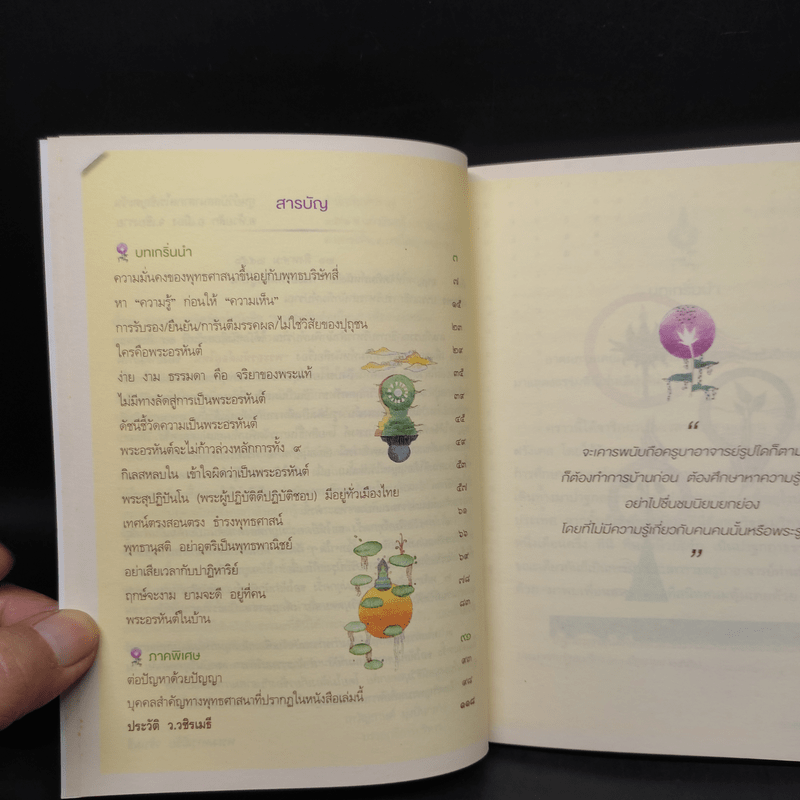 สารบัญ
บทเกริ่นนำ ๓
ความมั่นคงของพุทธศาสนาขึ้นอยู่กับพุทธบริษัทสี่ ๗
หา “ความรู้” ก่อนให้ “ความเห็น” ๑๕
การรับรอง/ยืนยัน/การันตีมรรคผล/ไม่ใช่วิสัยของปุถุชน ๒๓
ใครคือพระอรหันต์ ๒๔
ง่าย งาม ธรรมดา คือ จริยาของพระแท้ ๓๕
ไม่มีทางลัดสู่การเป็นพระอรหันต์ ๓๙
ดัชนีชี้วัดความเป็นพระอรหันต์ ๔๕
พระอรหันต์จะไม่ก้าวล่วงหลักการทั้ง ๙ ๔๙
กิเลสหลบใน เข้าใจผิดว่าเป็นพระอรหันต์ ๕๓
พระสุปฏิปันโน (พระผู้ปฏิบัติดีปฏิบัติชอบ) มีอยู่ทั่วเมืองไทย ๕๗
เทศน์ตรงสอนตรง ธำรงพุทธศาสน์ ๖๑
พุทธานุสติ อย่าอุตริเป็นพุทธพาณิชย์ ๖๖
อย่าเสียเวลากับปาฏิหาริย์ ๖๙
ฤกษ์จะงาม ยามจะดี อยู่ที่คน ๗๘
พระอรหันต์ในบ้าน ๘๓
ภาคพิเศษ
ต่อปัญหาด้วยปัญญา ๙๓
บุคคลสำคัญทางพุทธศาสนาที่ปรากฏในหนังสือเล่มนี้ ๙๘
ประวัติ ว.วชิรเมธี ๑๑๘
“
จะเคารพนับถือครูบาอาจารย์รูปใดก็ตาม
ก็ต้องทำการบ้านก่อน ต้องศึกษาหาความรู้
อย่าไปชื่นชมนิยมยกย่อง
โดยที่ไม่มีความรู้เกี่ยวกับคนคนนั้นหรือพระรู
”